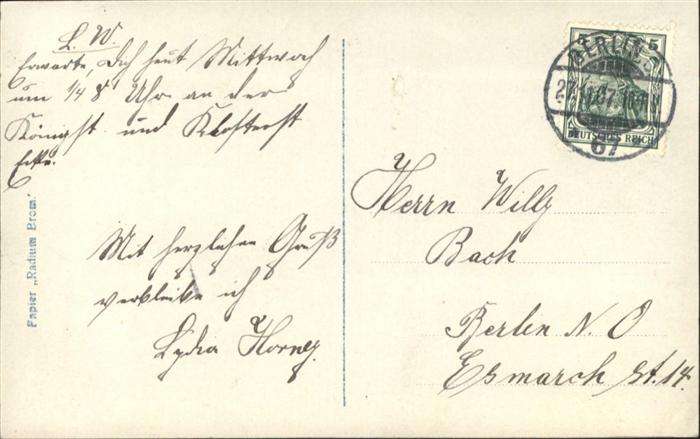 L. W.
Erwarte Dich heut Mittwoch
um 1/4 8 Uhr an der
Königst. und Klosterst
Ecke.
Mit herzlichen Gruß
verbleibe ich
Lydia Horney.
Papier „Radium Brom.“
5 5
BERLIN
DEUTSCHES REICH
67
Herrn Willy
Bach
Berlin N. O
Esmarch St. 14.